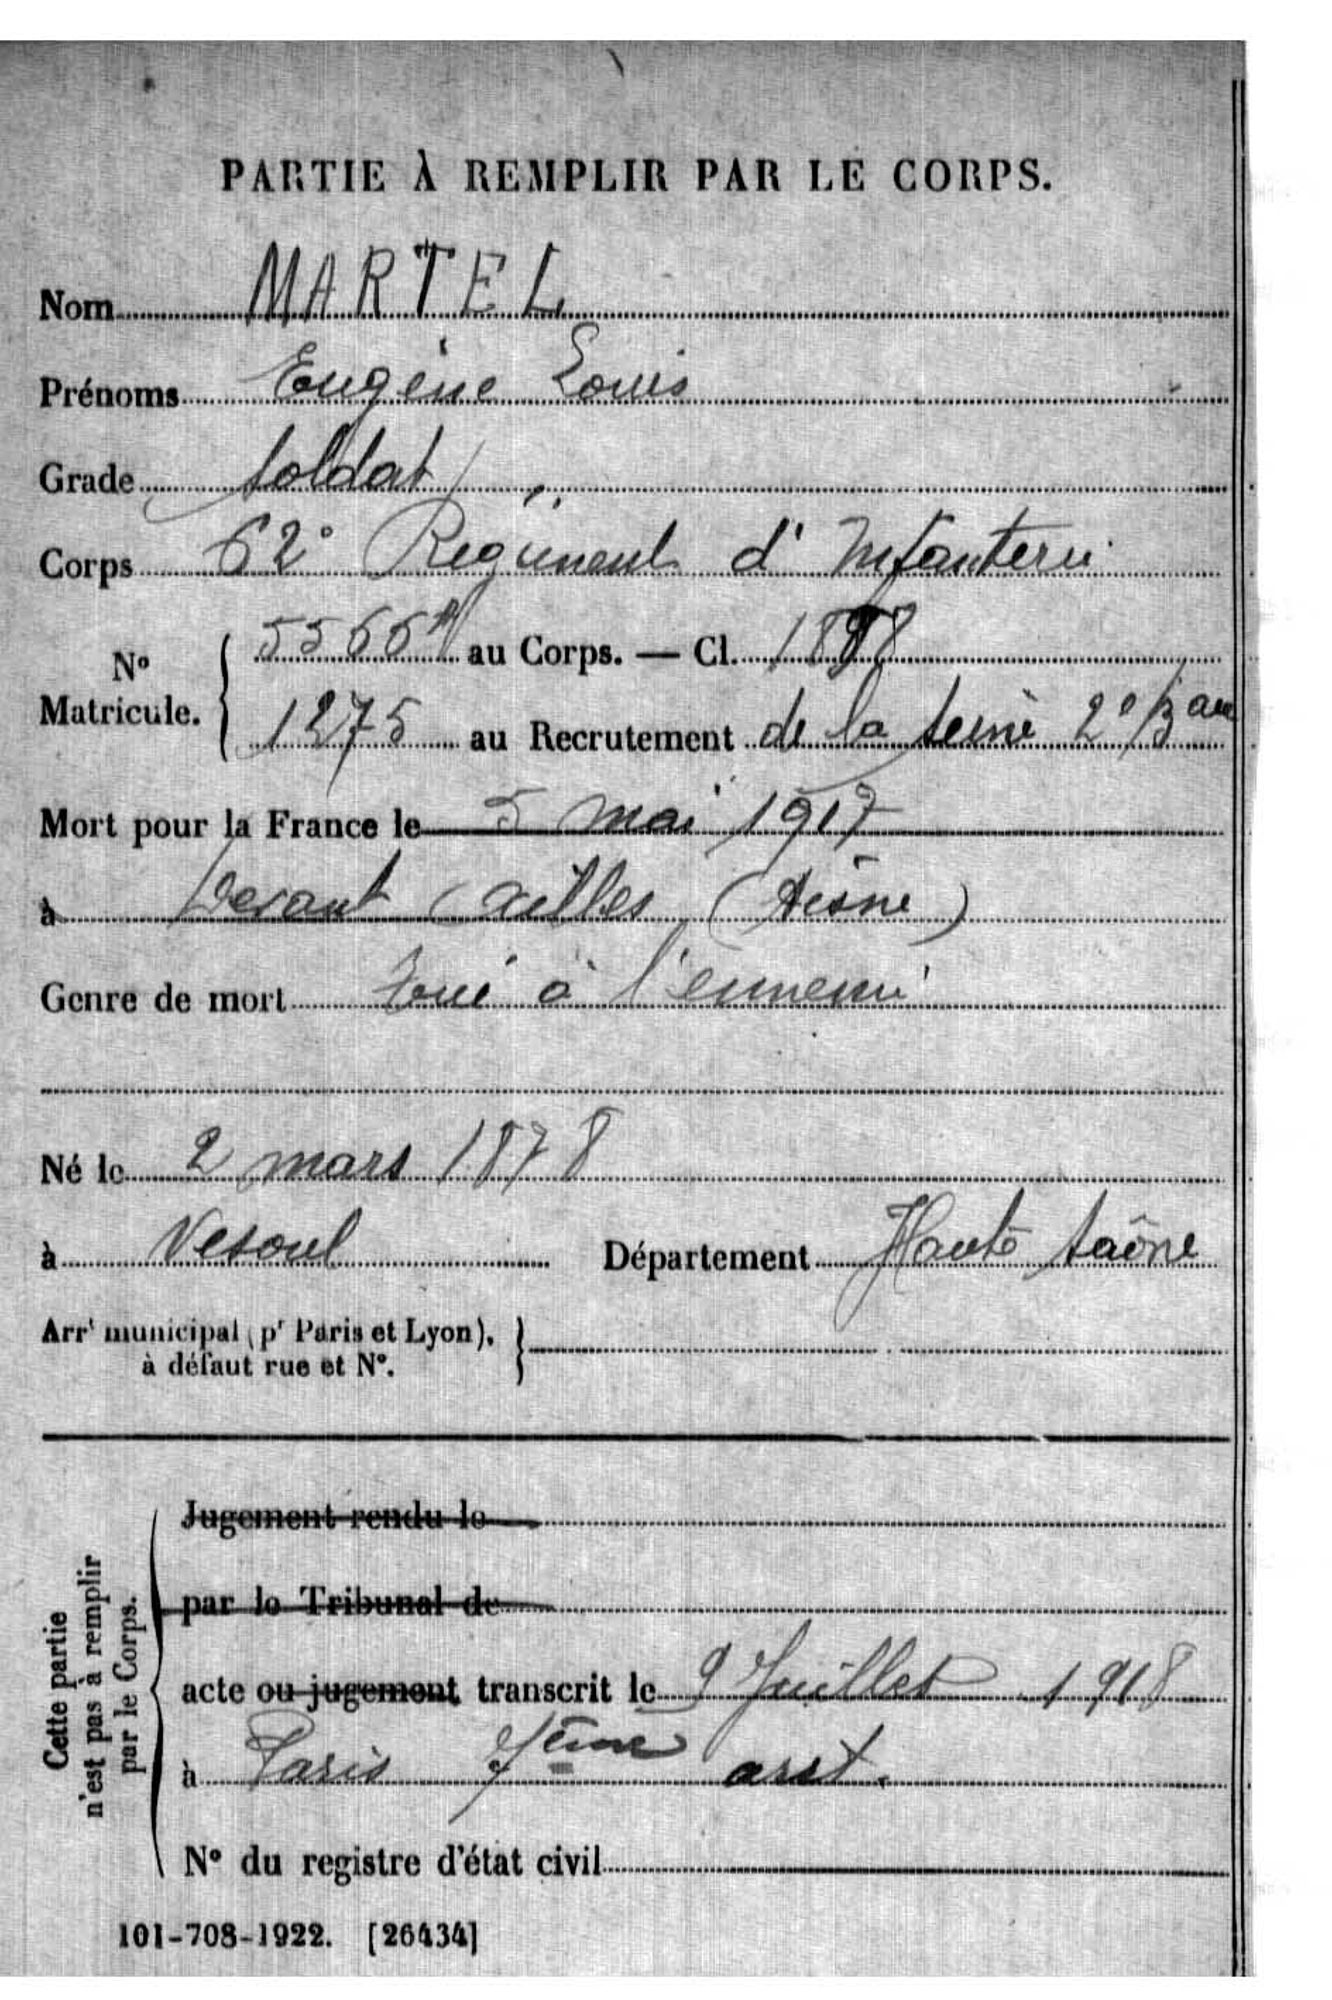 PARTIE À REMPLIR PAR LE CORPS.
Nom MARTEL
Prénoms Eugène Louis
Grade soldat
Corps 62e Régiment d'Infanterie
No Matricule. 5566 au Corps. — Cl. 1898
1275 au Recrutement de la Seine 2e B au
Mort pour la France le 5 mai 1917
à Devant Ailles (Aisne)
Genre de mort Tué à l'ennemi
Né le 2 mars 1878
à Vesoul Département Haute Saône
Arrt municipal (pr Paris et Lyon),
à défaut rue et No.
Cette partie
n'est pas à remplir
par le Corps.
Jugement rendu le
par le Tribunal de
acte ou jugement transcrit le 9 Juillet 1918
à Paris 7ème arrt.
No du registre d'état civil
101-708-1922. [26434]